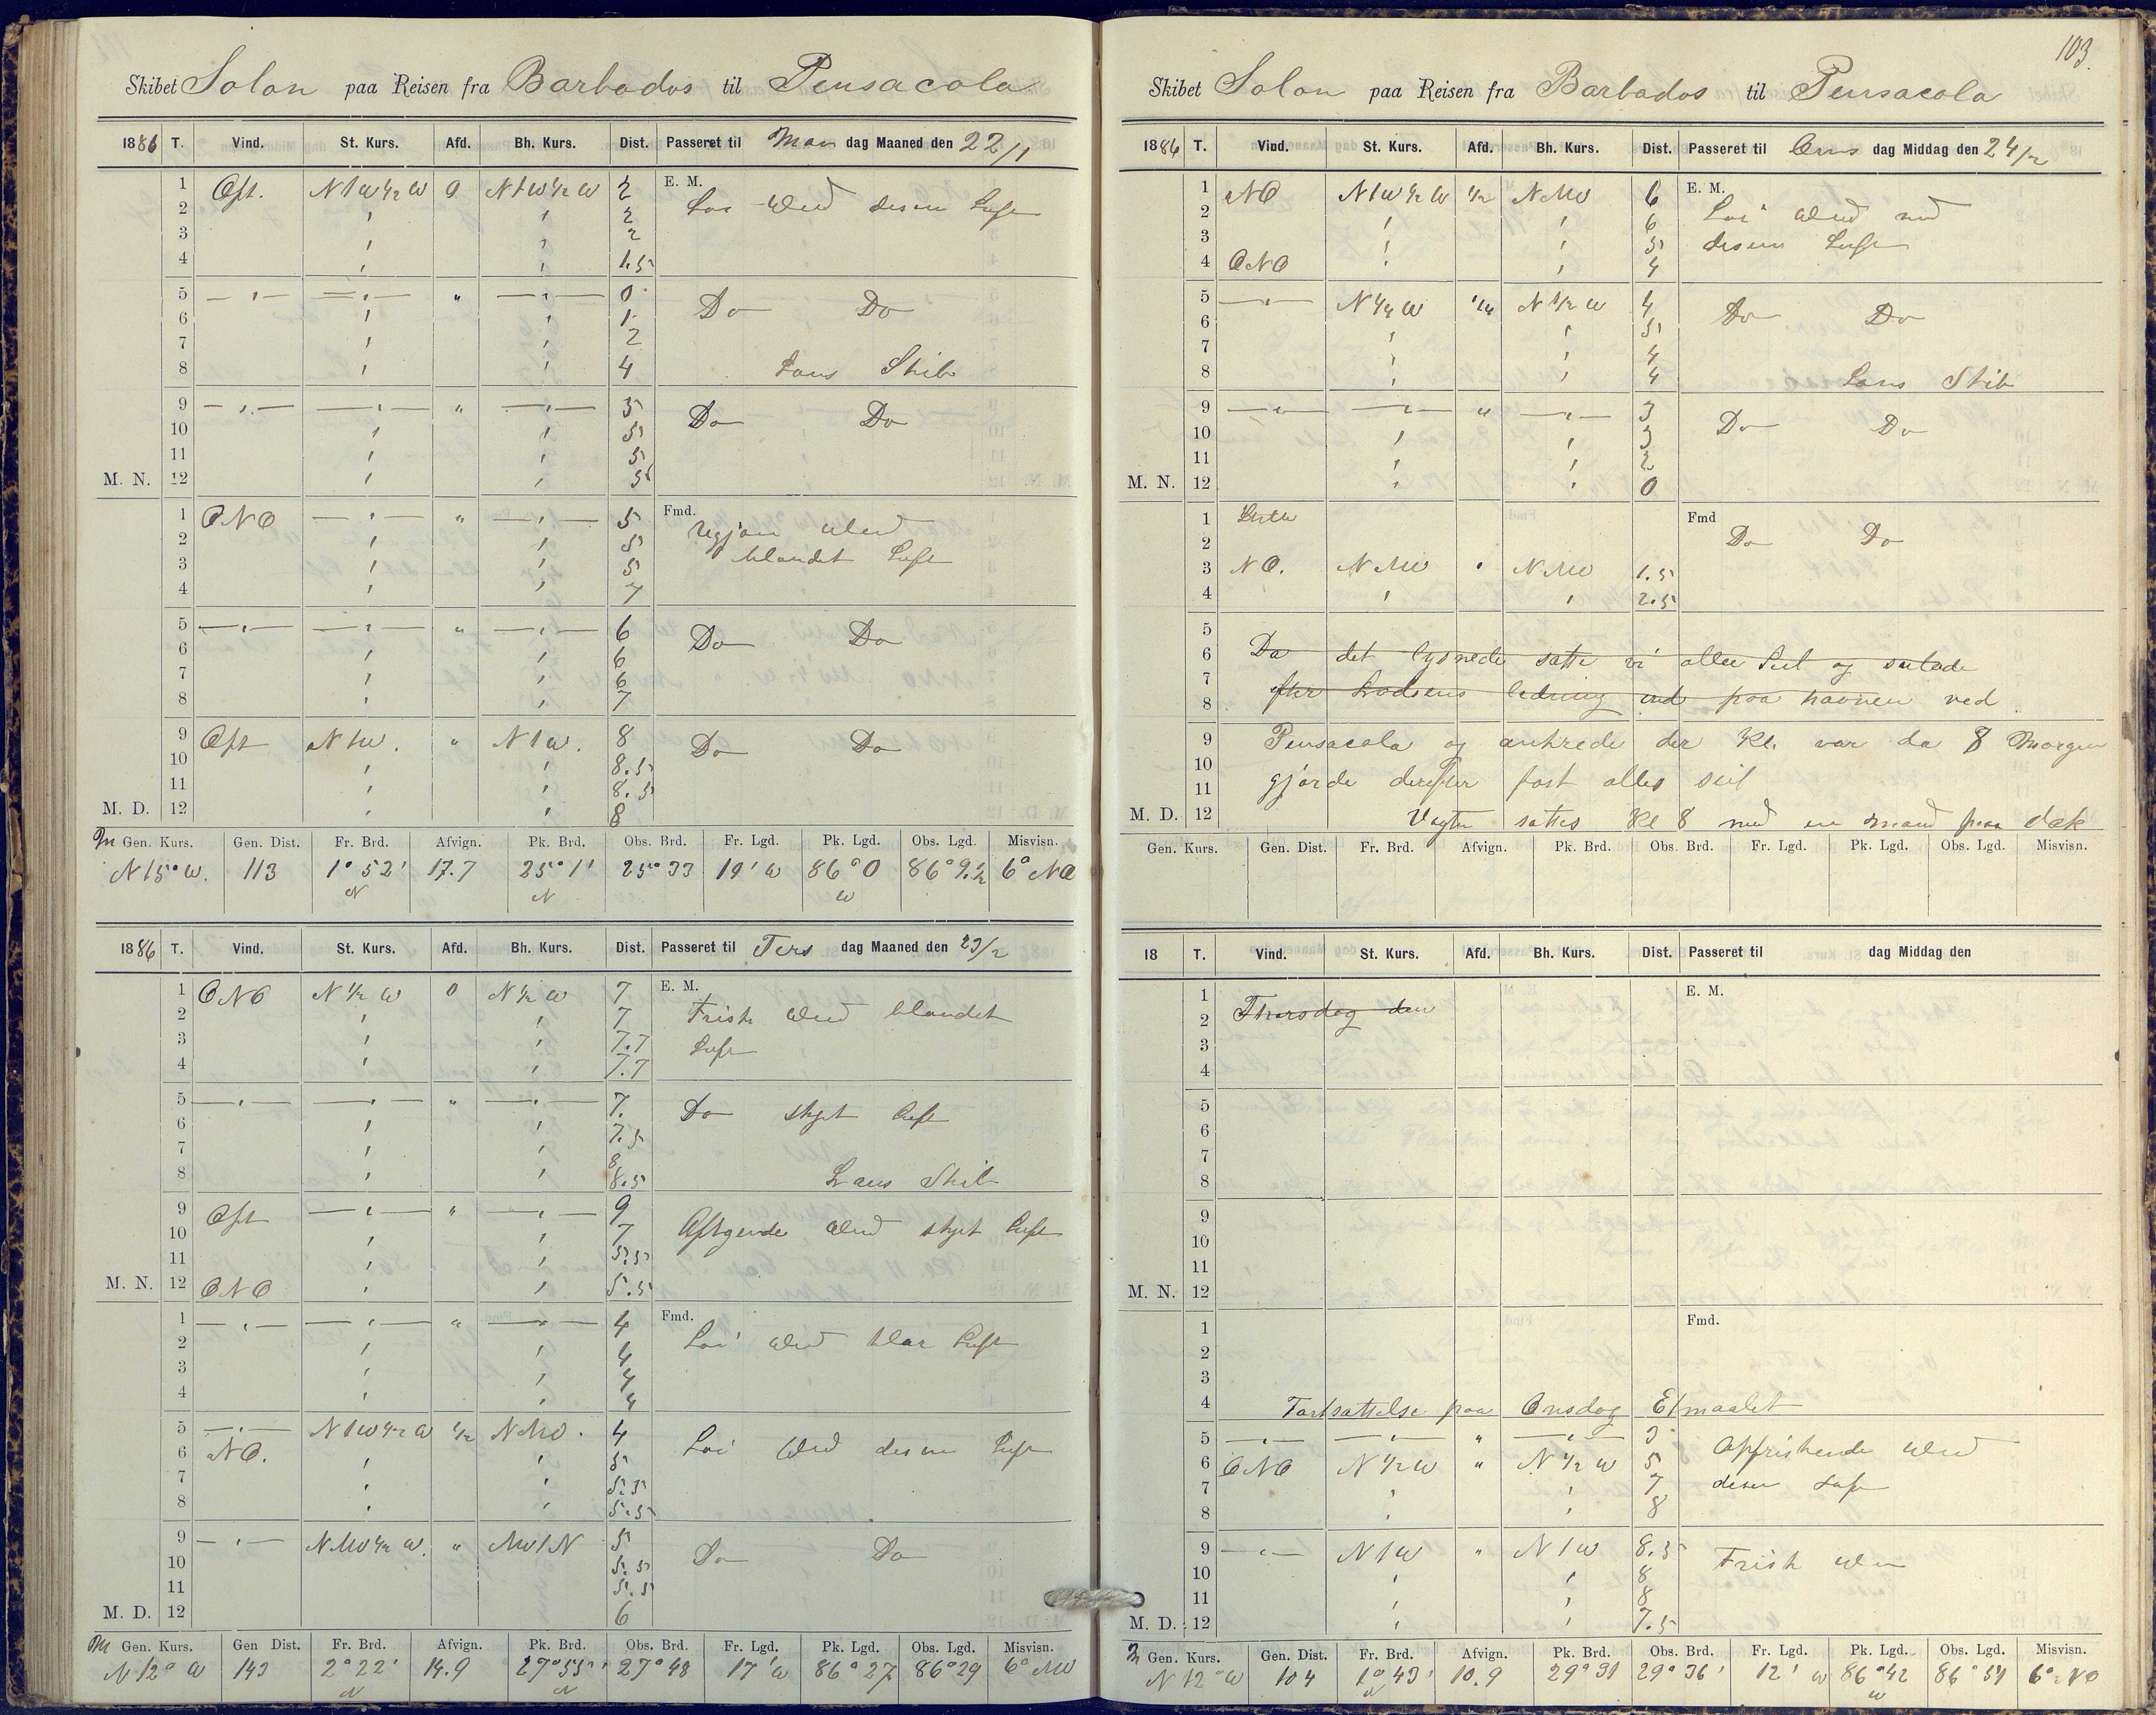 Skibet Solon paa Reisen fra Barbados til Pensacola
1886 T. Vind. St. Kurs. Afd. Bh. Kurs. Dist. Passeret til Man dag Maaned den 22/1
1 Ost. N1W½W 0 N1W½W 2 E. M.
2 2 Loi Wind disen Luft
3 2
4 1.5
5 0 Do Do
6 1
7 2
8 4 Lans Skib
9 5 Do Do
10 5
11 5
M. N. 12 5
1 ONO 5 Fmd.
2 5 Ugjon Wind
3 5 blandet Luft
4 7
5 6 Do Do
6 6
7 6
8 7
9 Ost N1W. N1W. 8 Do Do
10 8.5
11 8.5
M. D. 12 8
Gen. Kurs. Gen. Dist. Fr. Brd. Afvign. Pk. Brd. Obs. Brd. Fr. Lgd. Pk. Lgd. Obs. Lgd. Misvisn.
N 15° W. 113 1° 52' N 17.7 25° 1' N 25° 33 19' W 86° 0 W 86° 9.½ 6° NO
1886 T. Vind. St. Kurs. Afd. Bh. Kurs. Dist. Passeret til Tirs dag Maaned den 23/2
1 ONO N½W 0 N½W 7 E. M.
2 7 Frisk Wind blandet
3 7.7 Luft
4 7.7
5 7. Do skyet Luft
6 7.5
7 8
8 8.5 Lans Skib
9 Ost 9
10 7 Aftgende Wind skyet Luft
11 5.5
M. N. 12 ONO 5.5
1 4 Fmd.
2 4 Loi Wind klar Luft
3 4
4 4
5 N1W½W ½ NNW. 4
6 NO. 5 Loi Wind disen Luft
7 5.5
8 5.5
9 NNW½W. NW1N 5
10 5.5 Do Do
11 5.5
M. D. 12 6
Gen. Kurs. Gen Dist. Fr. Brd. Afvign. Pk. Brd. Obs. Brd. Fr. Lgd. Pk. Lgd. Obs. Lgd. Misvisn.
N 12° W 143 2° 22' N 14.9 27° 55' N 27° 48 17' W 86° 27 86° 29 6°
103.
Skibet Solon paa Reisen fra Barbados til Pensacola
1886 T. Vind. St. Kurs. Afd. Bh. Kurs. Dist. Passeret til Ons dag Middag den 24/2
1 NO N1W½W ½ NNW 6 E. M.
2 6 Loi Wind med
3 5 disen Luft
4 ONO 4
5 N¼W ¼ N½W 4 Do Do
6 5
7 4
8 4 Lans Skib
9 3 Do Do
10 3
11 2
M. N. 12 0
1 Stille Fmd
2 Do Do
3 NO. NNW NNW 1.5
4 2.5
5
6 Da det lysnede satte vi alle Seil og seilade
7
8 efter Lodsens ledning ind paa havnen ved
9 Pensacola og ankrede der Kl. var da 8 Morgen
10
11 gjorde derefter fast alles seil
M. D. 12 Vagten sattes Kl 8 med en mand paa dæk
Gen. Kurs. Gen. Dist. Fr. Brd. Afvign. Pk. Brd. Obs. Brd. Fr. Lgd. Pk. Lgd. Obs. Lgd. Misvisn.
18 T. Vind. St. Kurs. Afd. Bh. Kurs. Dist. Passeret til dag Middag den
1 E. M.
2 Thorsdag den
3
4
5
6
7
8
9
10
11
M. N. 12
1 Fmd.
2
3
4 Fortsattelse paa Onsdag Etmaalet
5 3
6 ONO N½W N½W 5 Opfriskende Wind
7 7 disen Luft
8 8
9 N1W N1W 8.5
10 8 Frisk Win
11 8
M. D. 12 7.5
Gen. Kurs. Gen. Dist. Fr. Brd. Afvign. Pk. Brd. Obs. Brd. Fr. Lgd. Pk. Lgd. Obs. Lgd. Misvisn.
N 12° W 104 1° 43' N 10.9 29° 31 29° 36' 12' W 86° 42 W 86° 51 6° NO